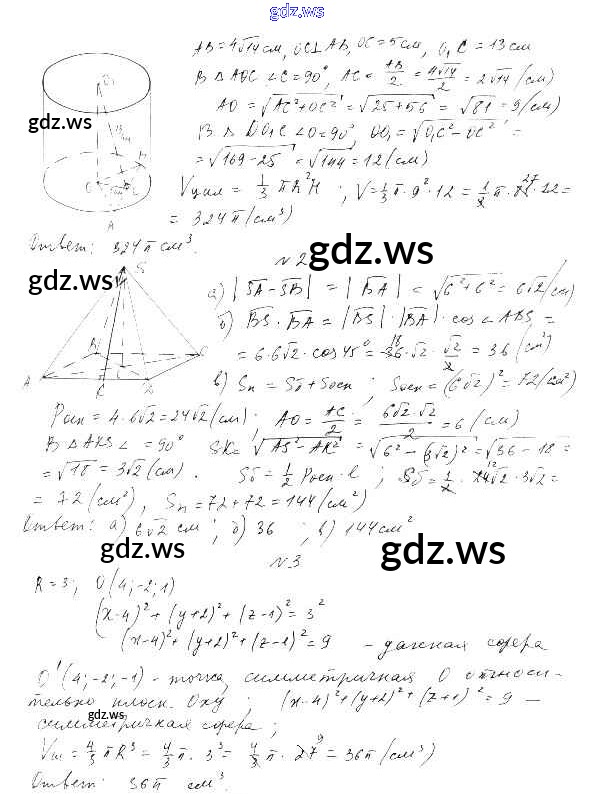 gdz.ws
AB = 4√14 см, OC⊥AB, OC = 5 см, O₁C = 13 см
В Δ AOC ∠C = 90°, AC = AB/2 = 4√14/2 = 2√14 (см)
gdz.ws
AO = √AC²+OC² = √25+56 = √81 = 9 (см)
В Δ OO₁C ∠O = 90° OO₁ = √O₁C² − OC² =
= √169−25 = √144 = 12 (см)
Vцил = 1/3 πR²H ; V = 1/3 π · 9² · 12 = 1/3 π · 81 · 12 =
= 324π (см³)
Ответ: 324π см³.
gdz.ws
N 2
gdz.ws
а) |SA − SB| = |BA| = √6²+6² = 6√2 (см)
б) BS · BA = |BS| · |BA| · cos ∠ABS =
= 6·6√2 · cos 45° = 36·√2 · √2/2 = 36 (см²)
в) Sп = Sб + Sосн ; Sосн = (6√2)² = 72 (см²)
Pосн = 4·6√2 = 24√2 (см) ; AO = AC/2 = 6√2·√2/2 = 6 (см)
В Δ AKS ∠ = 90° SK = √AS² − AK² = √6² − (3√2)² = √36 − 18 =
= √18 = 3√2 (см). Sб = 1/2 Pосн · l ; Sб = 1/2 · 24√2 · 3√2 =
= 72 (см²), Sп = 72 + 72 = 144 (см²)
Ответ: а) 6√2 см ; б) 36 ; в) 144 см²
gdz.ws
gdz.ws
N 3
R = 3 ; O (4; -2; 1)
(x-4)² + (y+2)² + (z-1)² = 3²
(x-4)² + (y+2)² + (z-1)² = 9 – данная сфера
O' (4; -2; -1) - точка, симметричная O относи-
тельно плоск. Oxy ; (x-4)² + (y+2)² + (z+1)² = 9 –
gdz.ws
симметричная сфера ;
Vш = 4/3 πR³ = 4/3 π · 3³ = 4/3 π · 27 = 36π (см³)
Ответ: 36π см³.